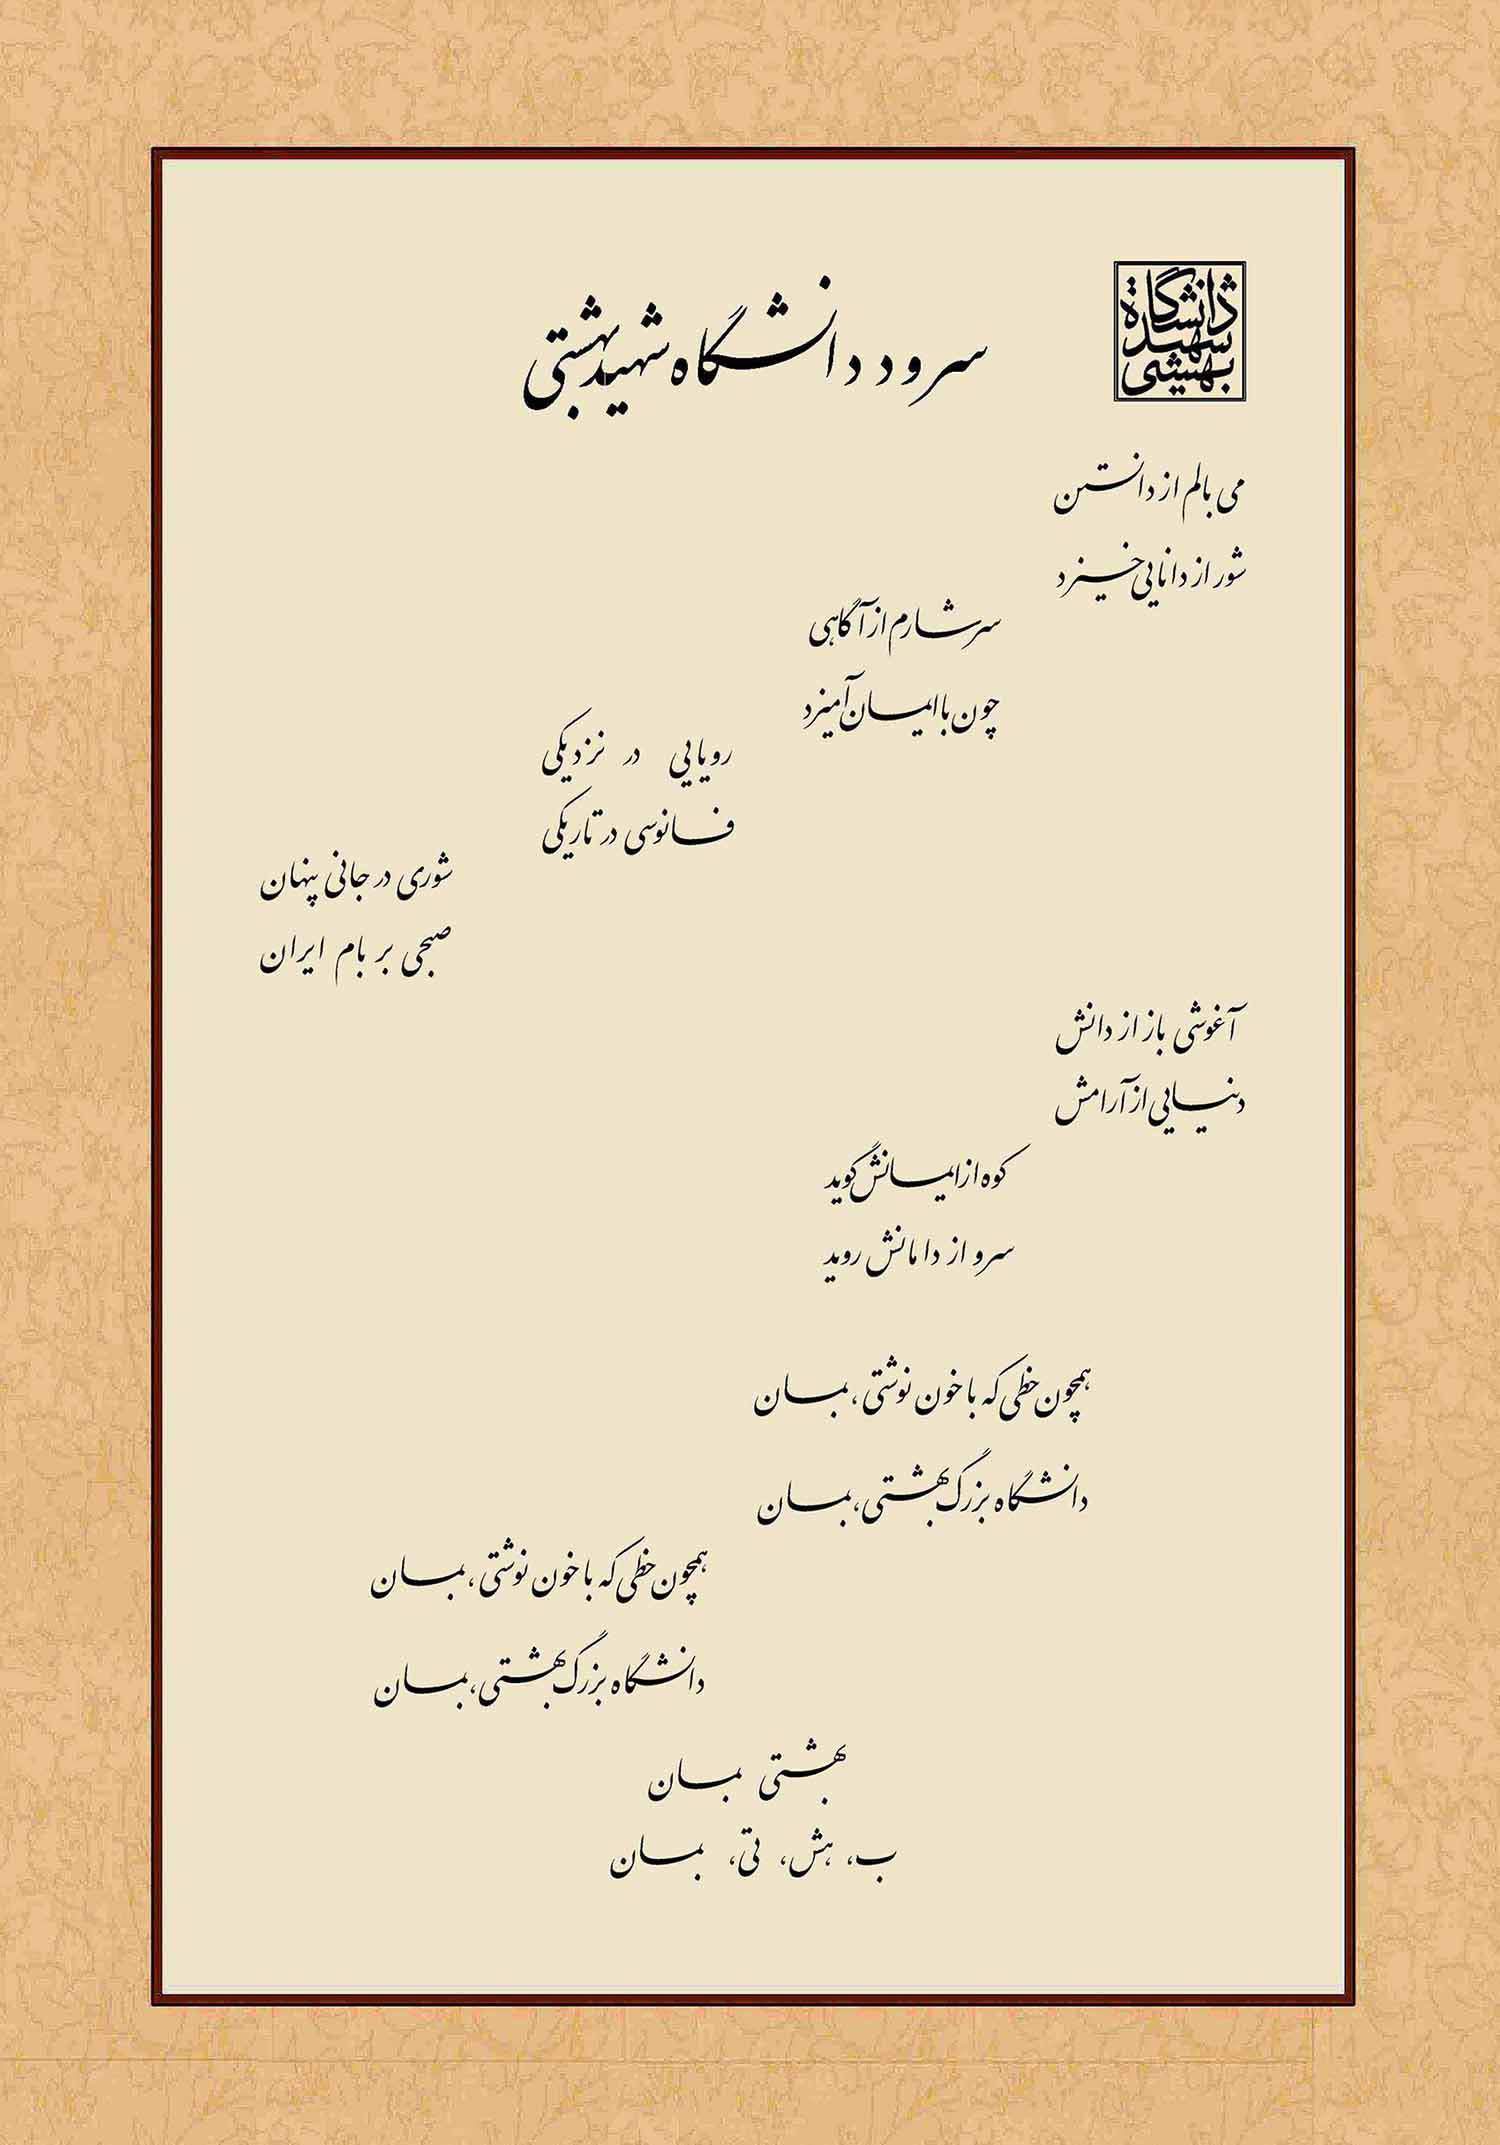 دانشگاه
شهید
بهشتی
سرود دانشگاه شهید بهشتی
می بالم از دانستن
شور از دانایی خیزد
سرشارم از آگاهی
چون با ایمان آمیزد
رویایی در نزدیکی
فانوسی در تاریکی
شوری در جانی پنهان
صبحی بر بام ایران
آغوشی باز از دانش
دنیایی از آرامش
کوه از ایمانش گوید
سرو از دامانش روید
همچون خطی که با خون نوشتی، بمان
دانشگاه بزرگ بهشتی، بمان
همچون خطی که با خون نوشتی، بمان
دانشگاه بزرگ بهشتی، بمان
بهشتی بمان
ب، هش، تی، بمان